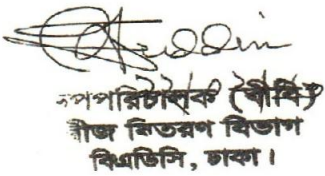 উপপরিচালক (বীবি)
বীজ বিতরণ বিভাগ
বিএডিসি, ঢাকা।